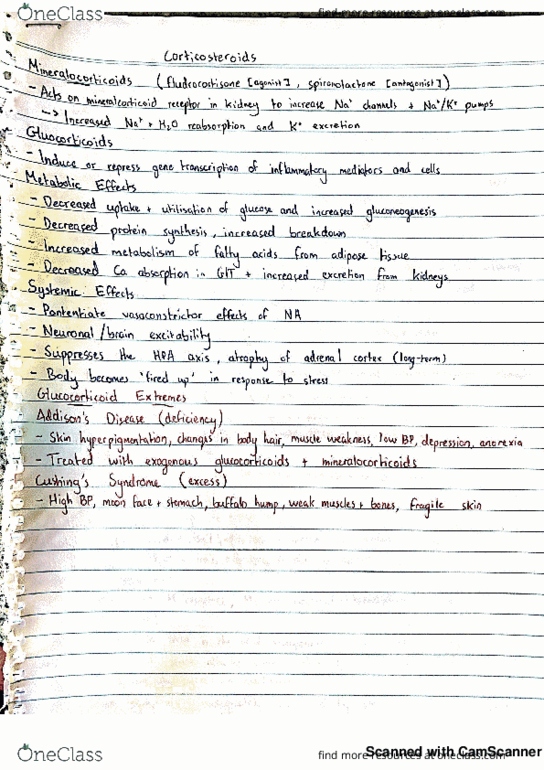 OneClass
find more resources at oneclass.com
Corticosteroids
Mineralocorticoids (fludrocortisone [agonist], spironolactone [antagonist])
- Acts on mineralcorticoid receptor in kidney to increase Na⁺ channels + Na⁺/K⁺ pumps
-> Increased Na⁺ + H₂O reabsorption and K⁺ excretion
Glucocorticoids
- Induce or repress gene transcription of inflammatory mediators and cells
Metabolic Effects
- Decreased uptake + utilisation of glucose and increased gluconeogenesis
- Decreased protein synthesis, increased breakdown
- Increased metabolism of fatty acids from adipose tissue
- Decreased Ca absorption in GIT + increased excretion from kidneys
Systemic Effects
- Pontentiate vasoconstrictor effects of NA
- Neuronal/brain excitability
- Suppresses the HPA axis, atrophy of adrenal cortex (long-term)
- Body becomes 'fired up' in response to stress
Glucocorticoid Extremes
Addison's Disease (deficiency)
- Skin hyperpigmentation, changes in body hair, muscle weakness, low BP, depression, anorexia
- Treated with exogenous glucocorticoids + mineralocorticoids
Cushing's Syndrome (excess)
- High BP, moon face + stomach, buffalo hump, weak muscles + bones, fragile skin
OneClass
find more resources at oneclass.com
Scanned with CamScanner